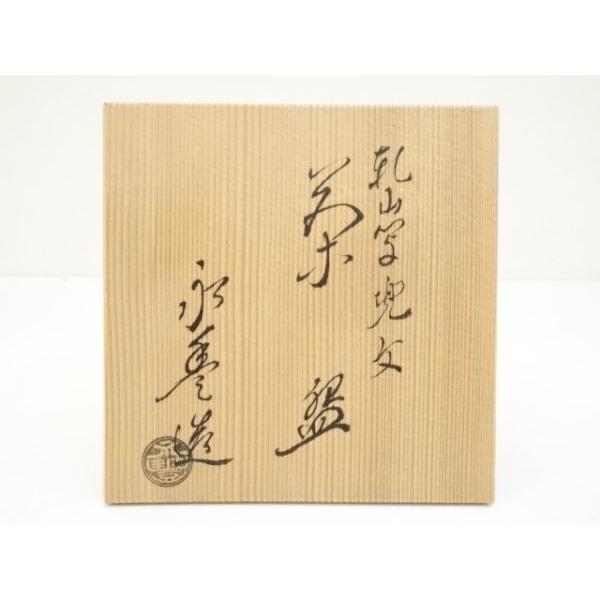 乾山写兜文
茶盌
永豊造